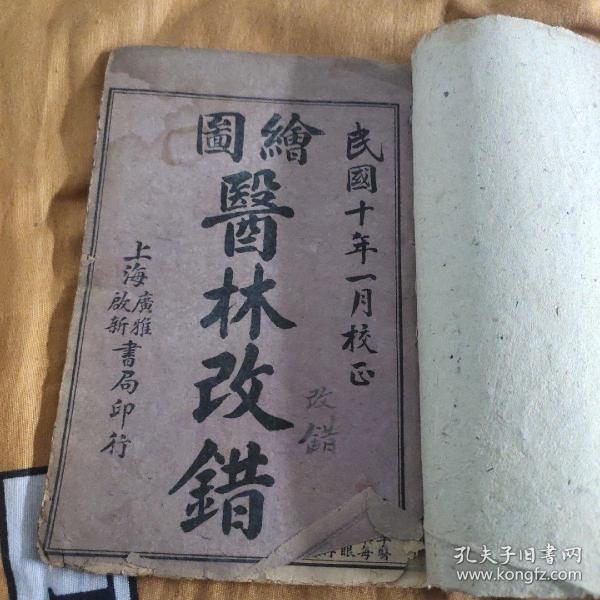 民國十年一月校正
繪圖
醫林改錯
上海廣雅啟新書局印行
改錯
孔夫子旧书网
www.kongfz.com